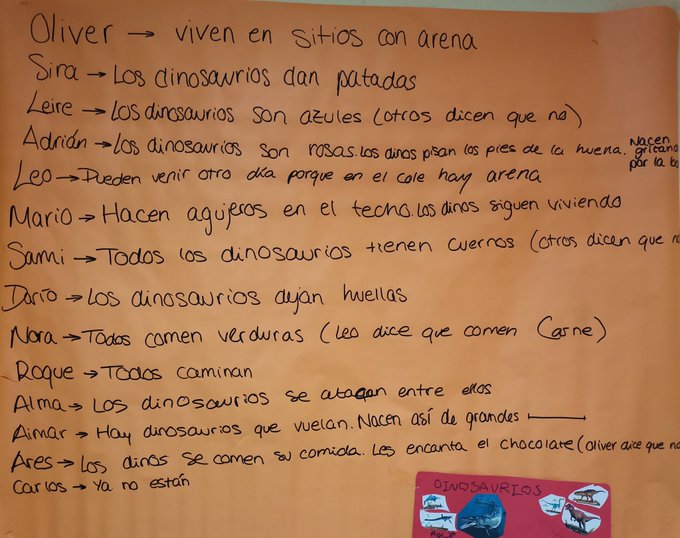 Oliver → viven en sitios con arena
Sira → Los dinosaurios dan patadas
Leire → Los dinosaurios son azules (otros dicen que no)
Adrián → Los dinosaurios son rosas. Los dinos pisan los pies de la huella. Nacen gritando por la bo
Leo → Pueden venir otro día porque en el cole hay arena
Mario → Hacen agujeros en el techo. Los dinos siguen viviendo
Sami → Todos los dinosaurios tienen cuernos (otros dicen que no
Darío → Los dinosaurios dejan huellas
Nora → Todos comen verduras (Leo dice que comen Carne)
Roque → Todos caminan
Alma → Los dinosaurios se atacan entre ellos
Aimar → Hay dinosaurios que vuelan. Nacen así de grandes
Ares → Los dinos se comen su comida. Les encanta el chocolate (Oliver dice que no
Carlos → Ya no están
DINOSAURIOS